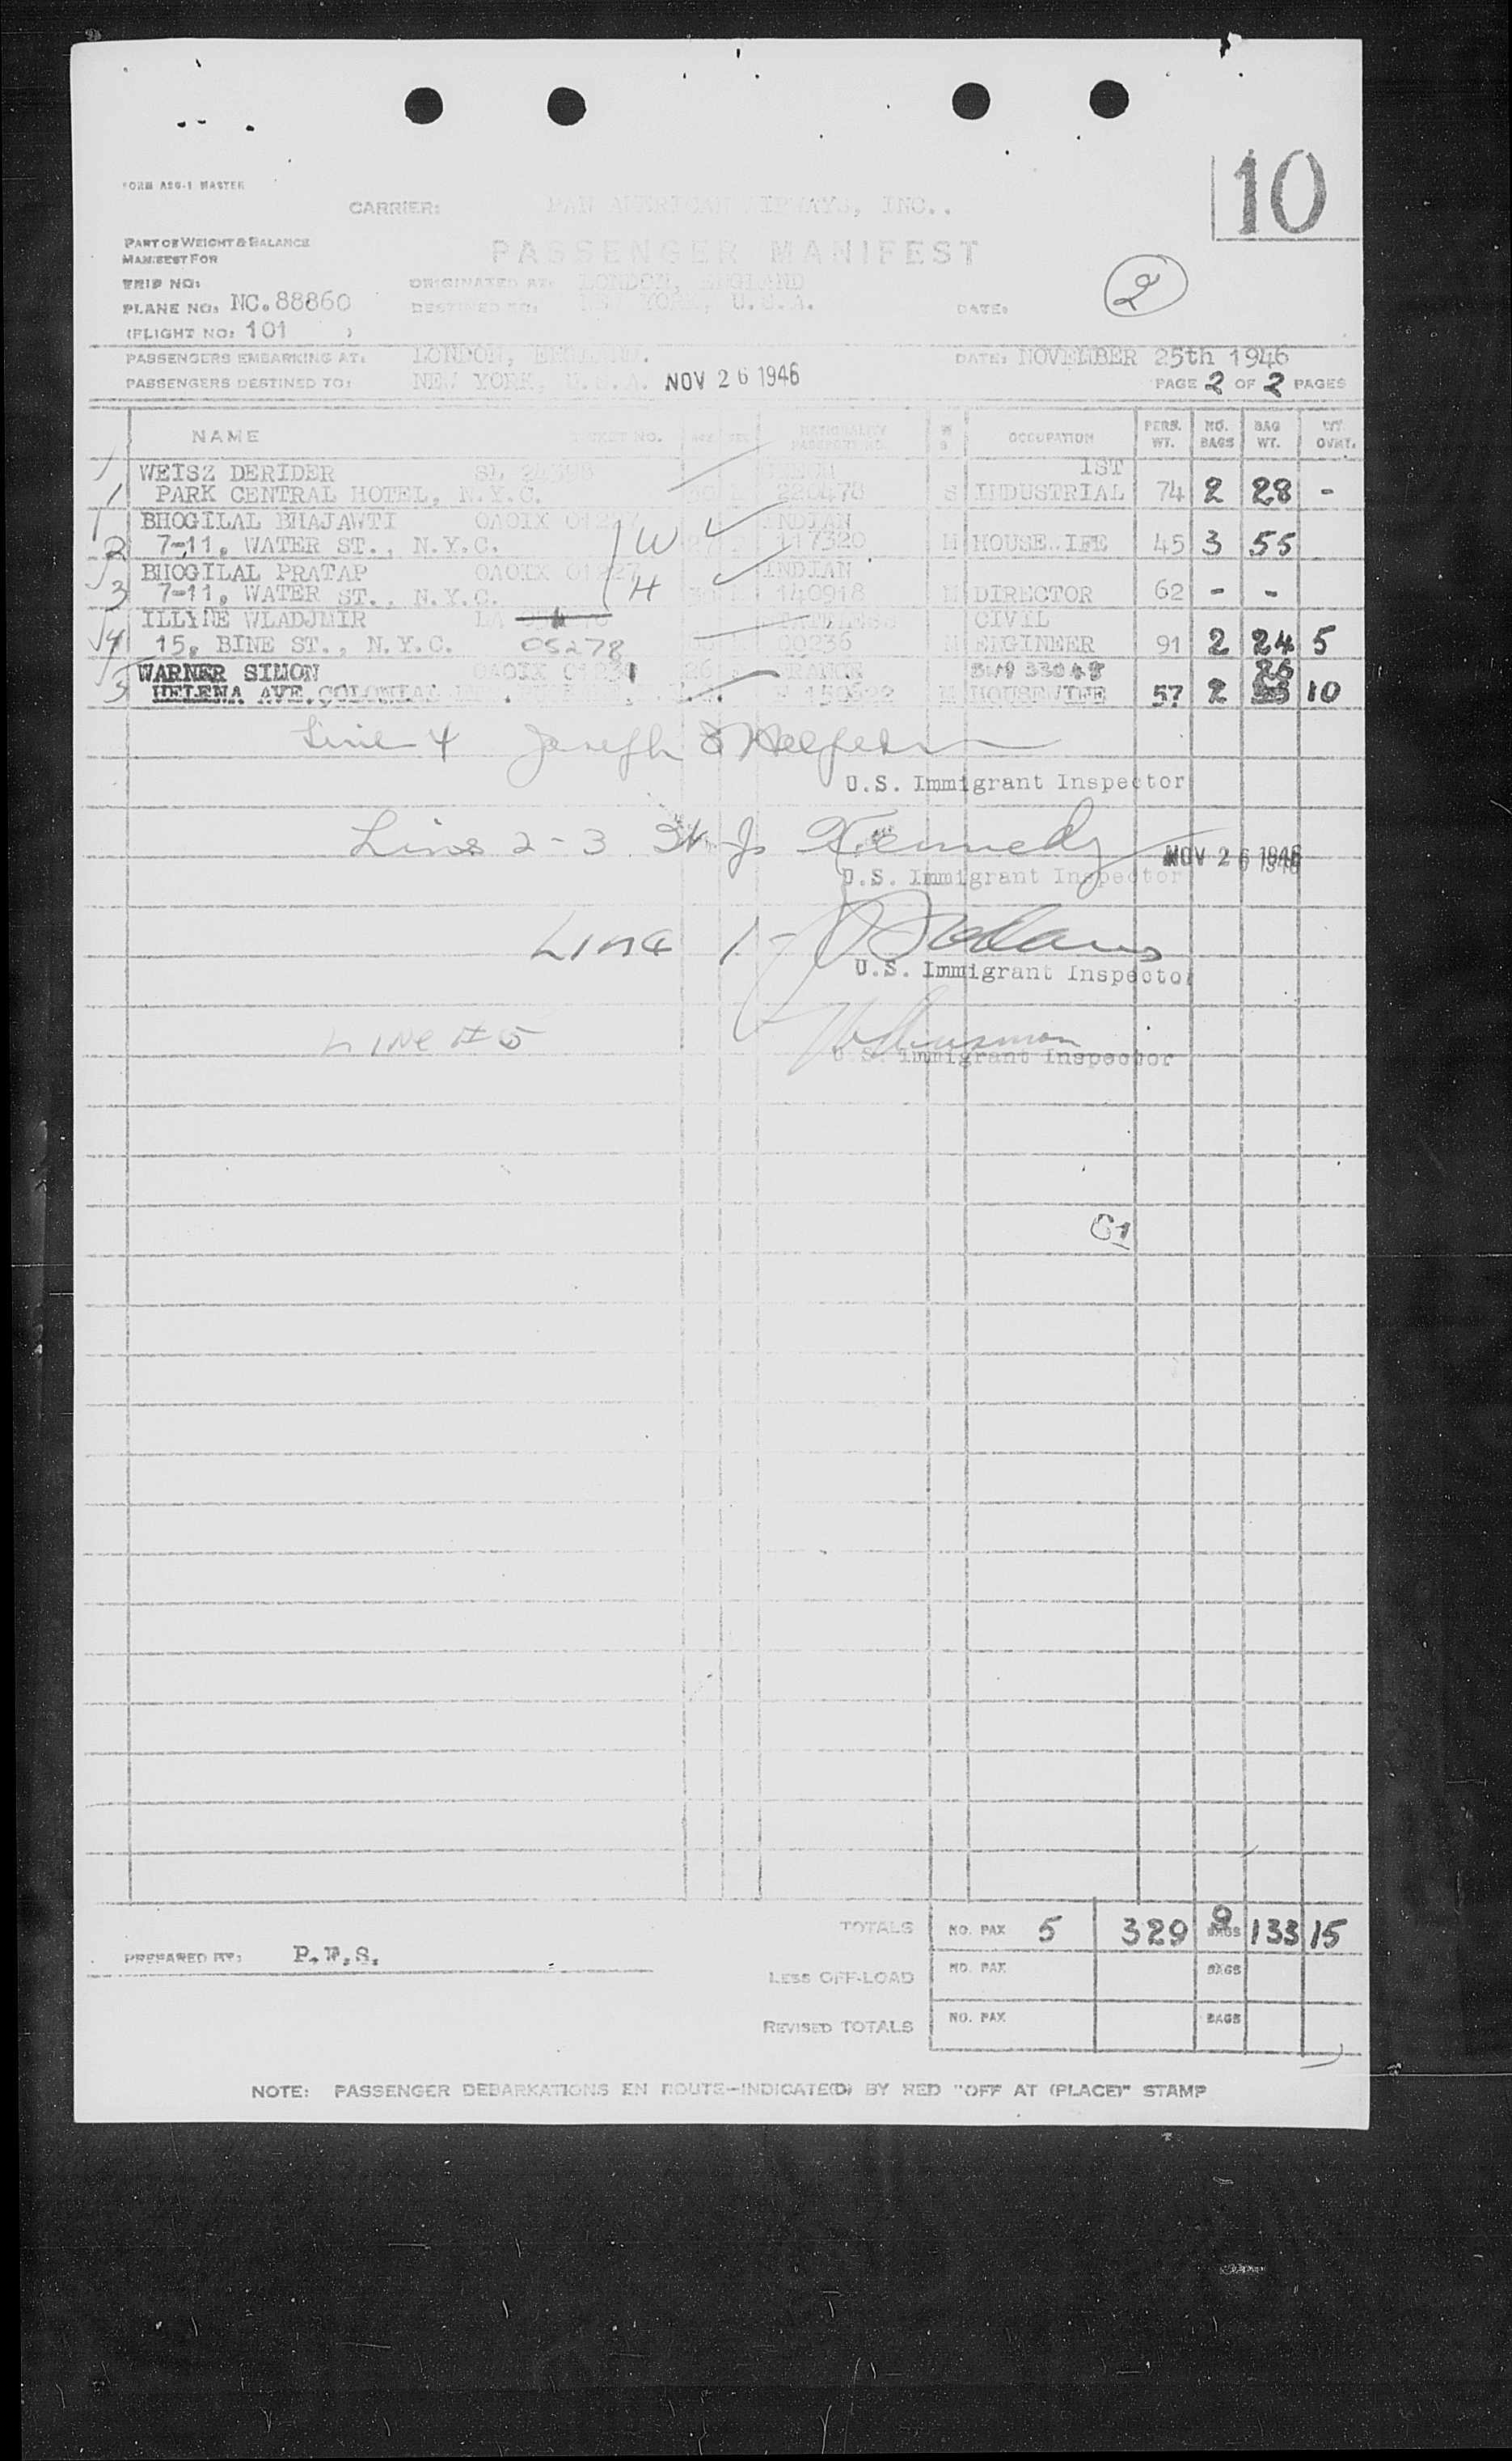 10
FORM ASG-1 MASTER
CARRIER: PAN AMERICAN AIRWAYS, INC..
PART OF WEIGHT & BALANCE
MANIFEST FOR
PASSENGER MANIFEST
TRIP NO:
ORIGINATED AT: LONDON, ENGLAND
2
PLANE NO: NC.88860
DESTINED TO: NEW YORK, U.S.A.
DATE:
(FLIGHT NO: 101 )
PASSENGERS EMBARKING AT: LONDON, ENGLAND.
DATE: NOVEMBER 25th 1946
PASSENGERS DESTINED TO: NEW YORK, U.S.A. NOV 26 1946
PAGE 2 OF 2 PAGES
NAME TICKET NO. AGE SEX NATIONALITY PASSPORT NO. M S OCCUPATION PERS. WT. NO. BAGS BAG WT. WT. OVWT.
WEISZ DERIDER SL IST
1 PARK CENTRAL HOTEL, N.Y.C. S INDUSTRIAL 74 2 28 -
BHOGILAL BHAJAWTI OAOIX INDIAN
2 7-11, WATER ST., N.Y.C. W 27 117320 M HOUSEWIFE 45 3 55
BHOGILAL PRATAP OAOIX 01227 INDIAN
3 7-11, WATER ST., N.Y.C. H 30 140918 M DIRECTOR 62 - -
ILLYNE WLADJMIR STATELESS CIVIL
4 15, BINE ST., N.Y.C. 05278 00336 M ENGINEER 91 2 24 5
WARNER SIMON OAOIX 26 FRANCE 33048 26
5 HELENA AVE. COLONIAL M HOUSEWIFE 57 2 10
Line 4 Joseph
U.S. Immigrant Inspector
Lines 2-3 Kennedy NOV 26 1946
U.S. Immigrant Inspector
LINE 1-
U.S. Immigrant Inspector
LINE # 5
U.S. Immigrant Inspector
TOTALS NO. PAX 5 329 9 BAGS 133 15
PREPARED BY: P.W.S.
LESS OFF-LOAD NO. PAX BAGS
REVISED TOTALS NO. PAX BAGS
NOTE: PASSENGER DEBARKATIONS EN ROUTE—INDICATE(D) BY RED "OFF AT (PLACE)" STAMP